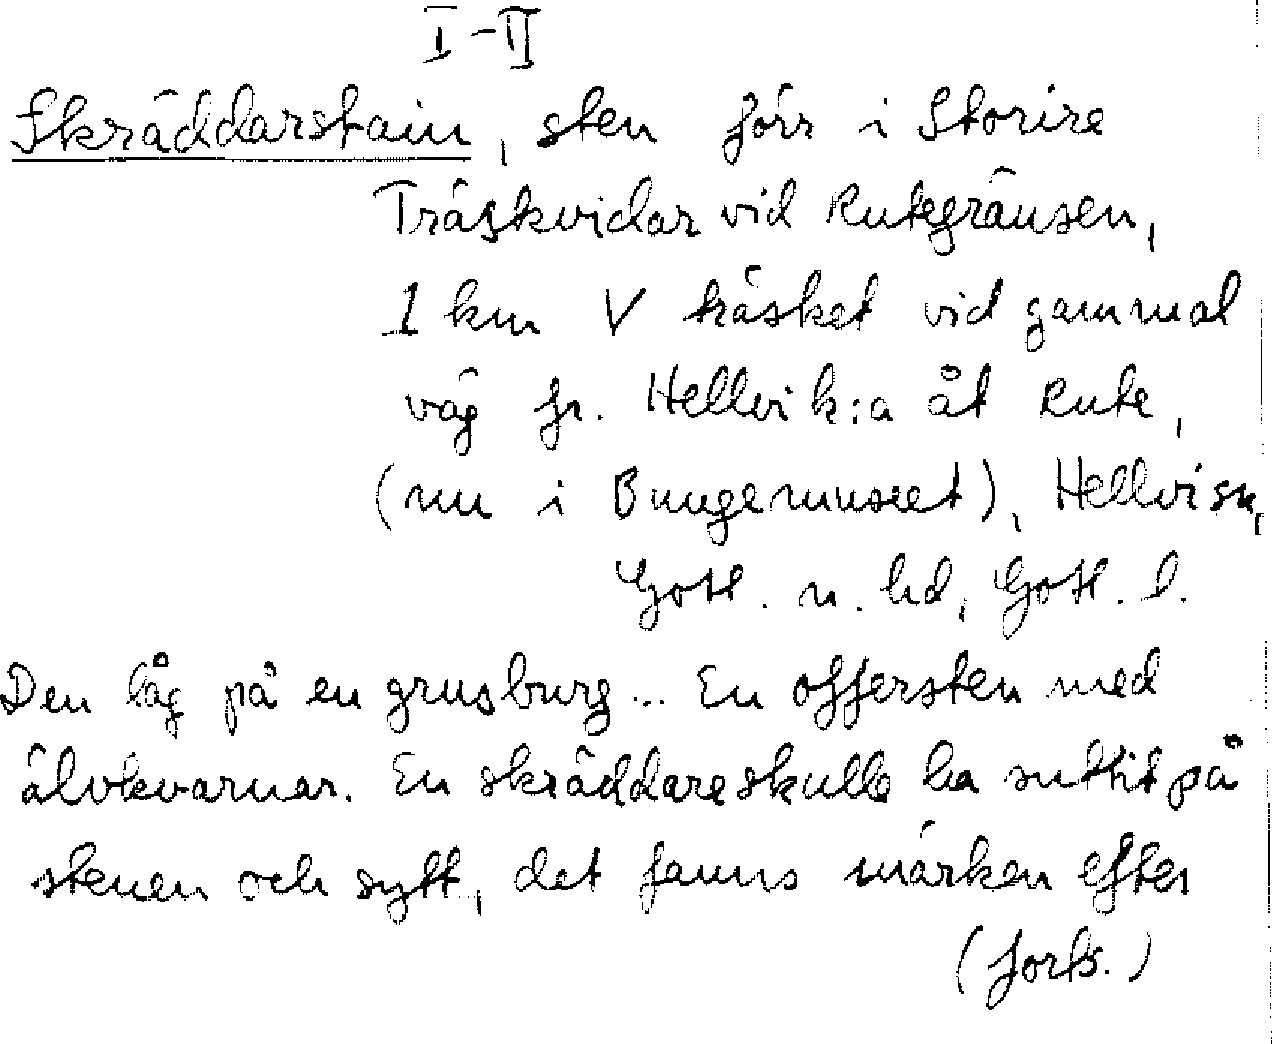 I-II
Skräddarstain, sten förr i Storire
Träskvidar vid Rutegränsen,
1 km V träsket vid gammal
väg fr. Hellvi k:a åt Rute,
(nu i Bungemuseet), Hellvi sn,
Gotl. n. hd, Gotl. l.
Den låg på en grusburg... En offersten med
älvkvarnar. En skräddare skulle ha suttit på
stenen och sytt, det fanns märken efter
(forts.)